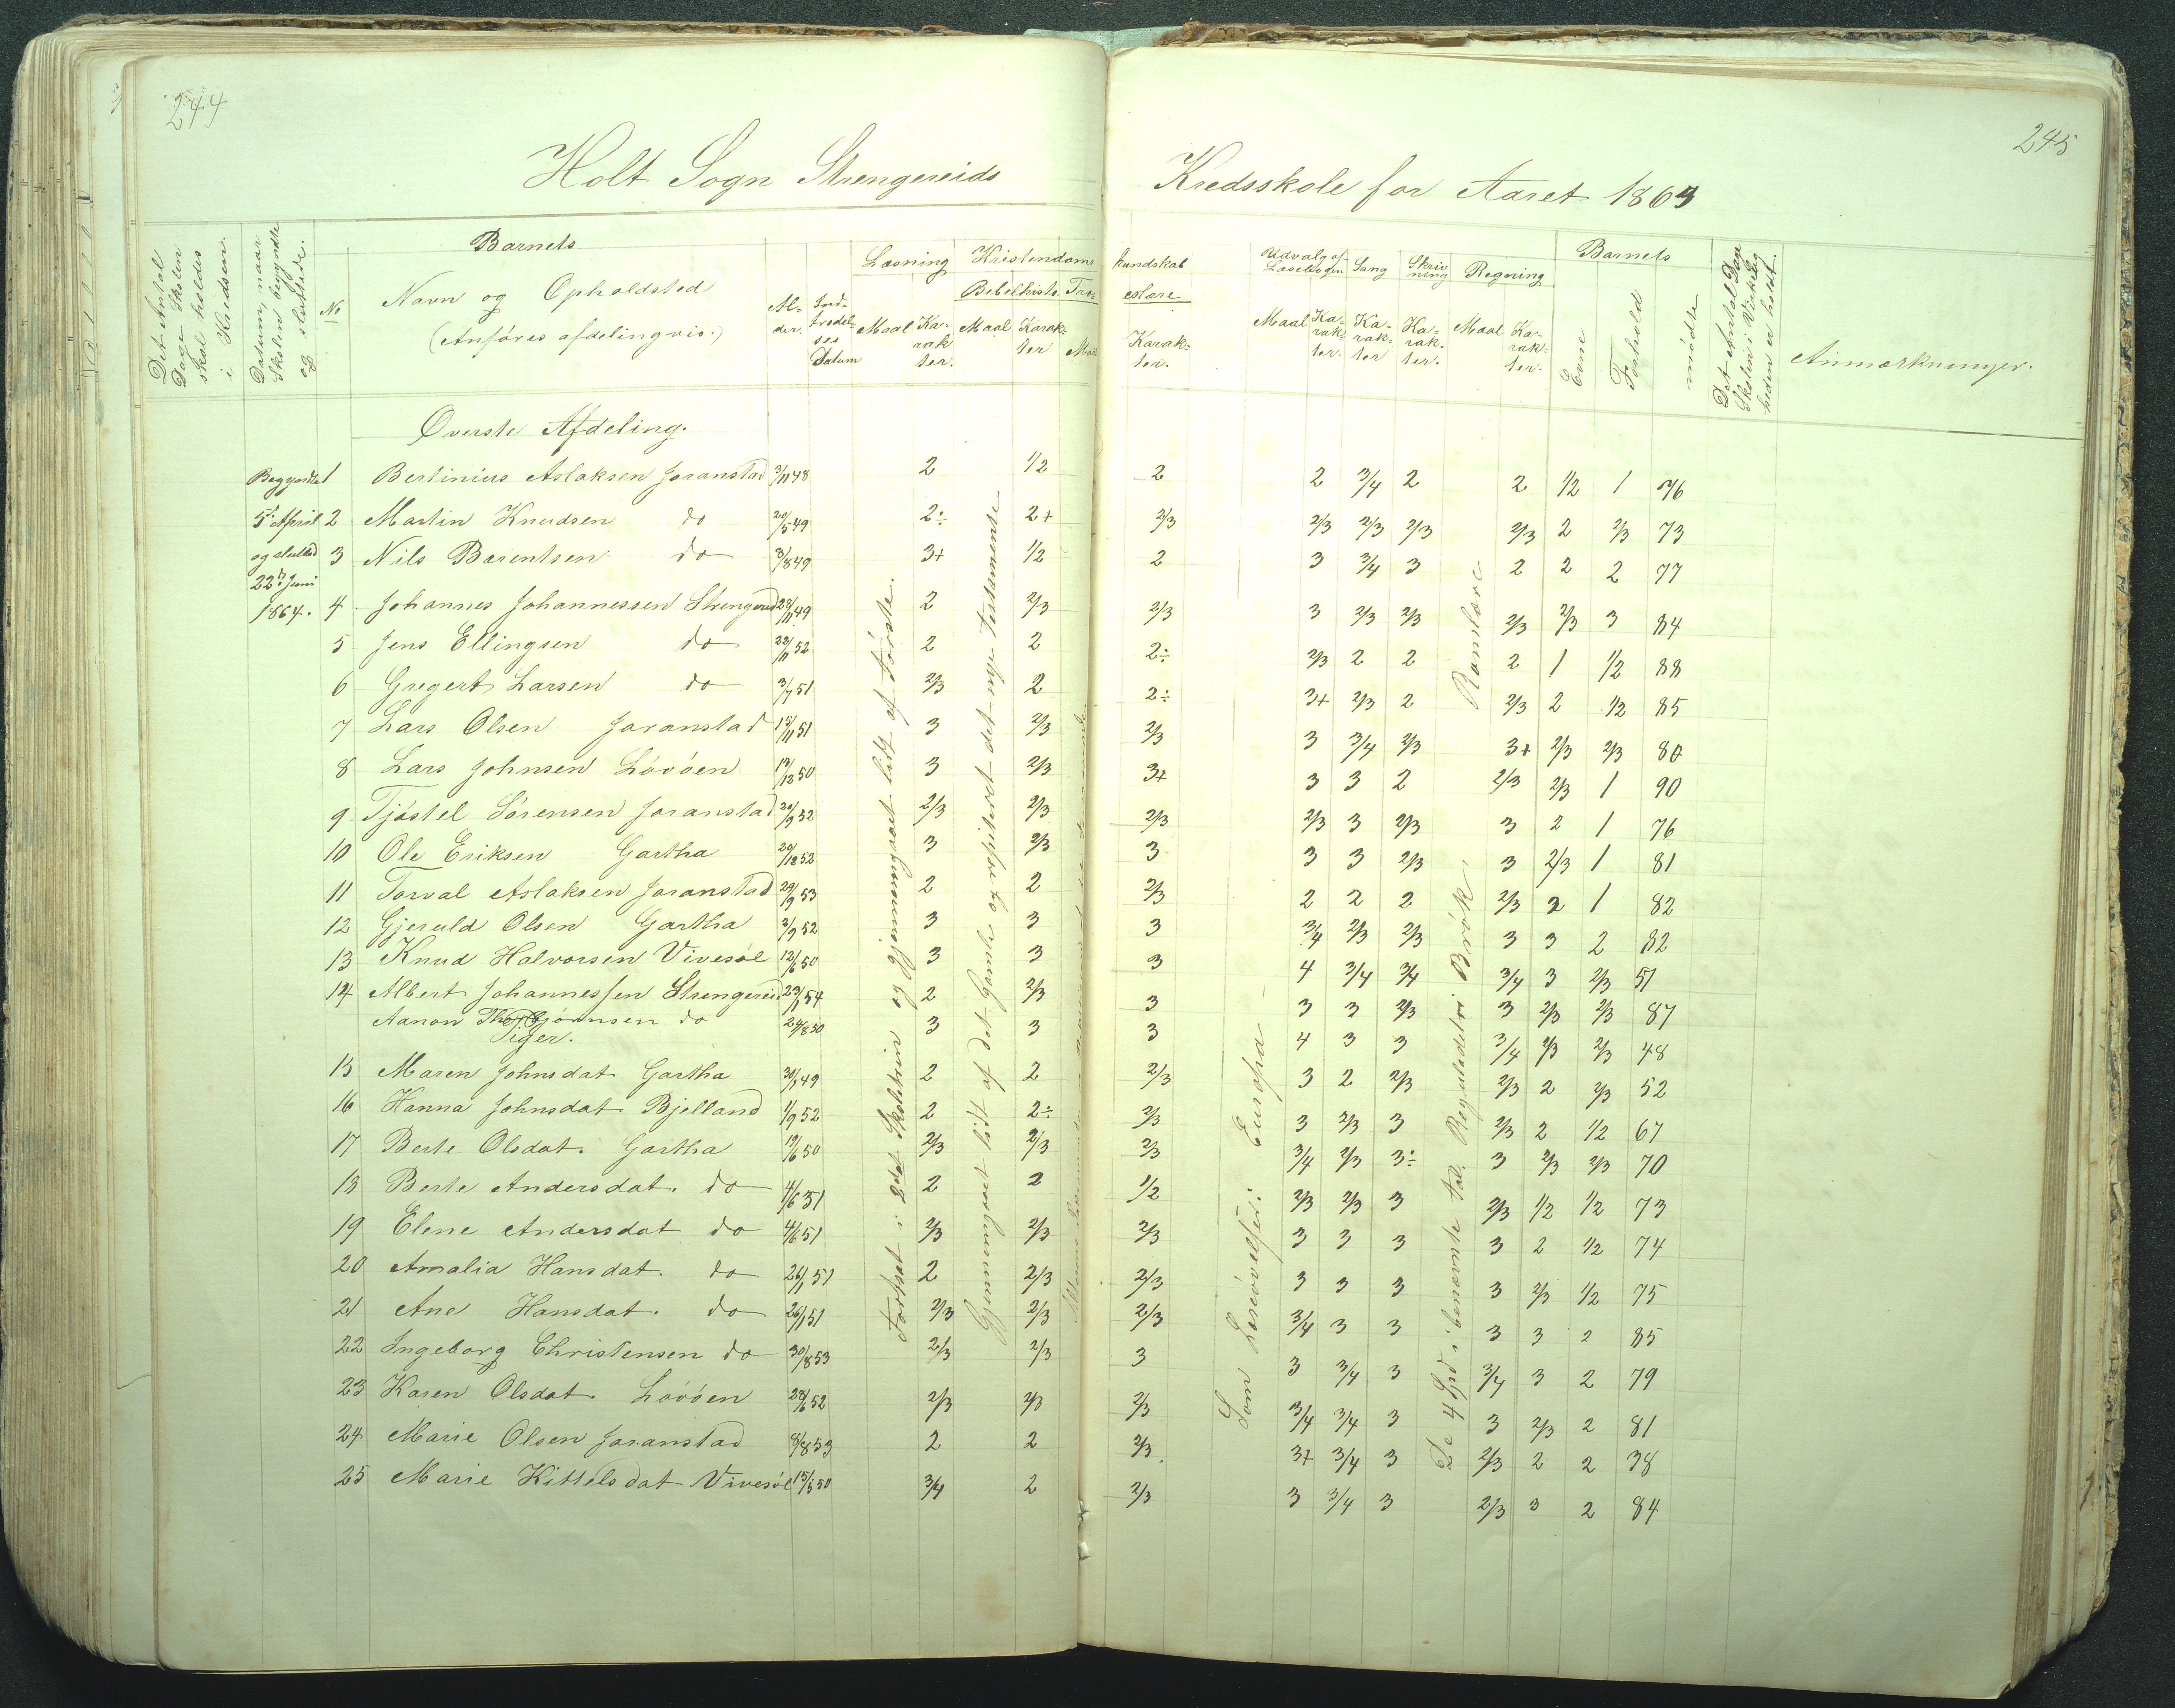 244
245
Holt Sogn Strengereids Kredsskole for Aaret 1863
Det Antal Dage Skolen skal holdes i Kredsen.
Datum, naar Skolen begyndte og sluttede.
No
Barnets
Navn og Opholdsted
(Anføres afdelingvis.)
Al-der.
Ind-trædel-ses Datum
Læsning
Maal Ka-rak-ter.
Kristendoms kundskab
Bebelhist. Maal Karak-ter
Troeslære Maal Karak-ter.
Udvalg af Læsebogen Maal Ka-rak-ter.
Sang Ka-rak-ter
Skriv-ning Ka-rak-ter.
Regning Maal Ka-rak-ter.
Barnets
Evne Forhold mødte
Det Antal Dage Skolen i Virkelig-heden er holdt.
Anmærkninger.
Øverste Afdeling.
Begyndte 5te April og slutted 22de Juni 1864.
1 Bertinius Aslaksen Joranstad 3/11 48 2 1/2 2 2 3/4 2 2 1/2 1 76
2 Martin Knudsen do 20/5 49 2÷ 2+ 2/3 2/3 2/3 2/3 2/3 2 2/3 73
3 Nils Barentsen do 8/8 49 3+ 1/2 2 3 3/4 3 2 2 2 77
4 Johannes Johannessen Strengereid 29/11 49 2 2/3 2/3 3 2/3 2/3 2/3 2/3 3 84
5 Jens Ellingsen do 22/11 52 2 2 2÷ 2/3 2 2 2 1 1/2 88
6 Gregert Larsen do 3/7 51 2/3 2 2÷ 3+ 2/3 2 2/3 2 1/2 85
7 Lars Olsen Joranstad 15/11 51 3 2/3 2/3 3 3/4 2/3 3+ 2/3 2/3 80
8 Lars Johnsen Løvøen 13/12 50 3 2/3 3+ 3 3 2 2/3 2/3 1 90
9 Tjøstel Sørensen Joranstad 20/9 52 2/3 2/3 2/3 2/3 3 2/3 3 2 1 76
10 Ole Eriksen Gartha 29/12 52 3 2/3 3 3 3 2/3 3 2/3 1 81
11 Torval Aslaksen Joranstad 29/9 53 2 2 2/3 2 2 2 2/3 2 1 82
12 Gjeruld Olsen Gartha 3/9 52 3 3 3 3/4 2/3 2/3 3 3 2 82
13 Knud Halvorsen Vivesøl 12/6 50 3 3 3 4 3/4 3/4 3/4 3 2/3 51
14 Albert Johannessen Strengereid 23/1 54 2 2/3 3 3 3 2/3 3 2/3 2/3 87
Aanon Thorbjørnsen do 24/8 50 3 3 3 4 3 3 3/4 2/3 2/3 48
Piger.
15 Maren Johnsdat Gartha 30/1 49 2 2 2/3 3 2 2/3 2/3 2 2/3 52
16 Hanna Johnsdat Bjelland 1/9 52 2 2÷ 2/3 3 2/3 3 2/3 2 1/2 67
17 Berte Olsdat. Gartha 19/6 50 2/3 2/3 2/3 3/4 2/3 3÷ 3 2/3 2/3 70
18 Berte Andersdat. do 4/6 51 2 2 1/2 2/3 2/3 3 2/3 1/2 1/2 73
19 Elene Andersdat do 4/6 51 2/3 2/3 2/3 3 3 3 3 2 1/2 74
20 Amalia Hansdat. do 26/1 51 2 2/3 2/3 3 3 3 3 2/3 1/2 75
21 Ane Hansdat. do 26/1 51 2/3 2/3 2/3 3/4 3 3 3 3 2 85
22 Ingeborg Christensen do 30/8 53 2/3 2/3 3 3 3/4 3 3/4 3 2 79
23 Karen Olsdat. Løvøen 28/6 52 2/3 2/3 2/3 3/4 3/4 3 3 2/3 2 81
24 Marie Olsen Joranstad 8/8 53 2 2 2/3 3+ 3/4 3 2/3 2 2 38
25 Marie Kittelsdat Vivesøl 15/5 50 3/4 2 2/3 3 3/4 3 2/3 3 2 84
Fortsat i 2det Skoletrin og gjennemgaaet lidt af første.
Gjennemgaaet lidt af det Gamle og repiteret det nye testamente.
Som Læseøvelser: Europa
De 4 Spd i benævnte tal. Reguladetri Brøk Romlære